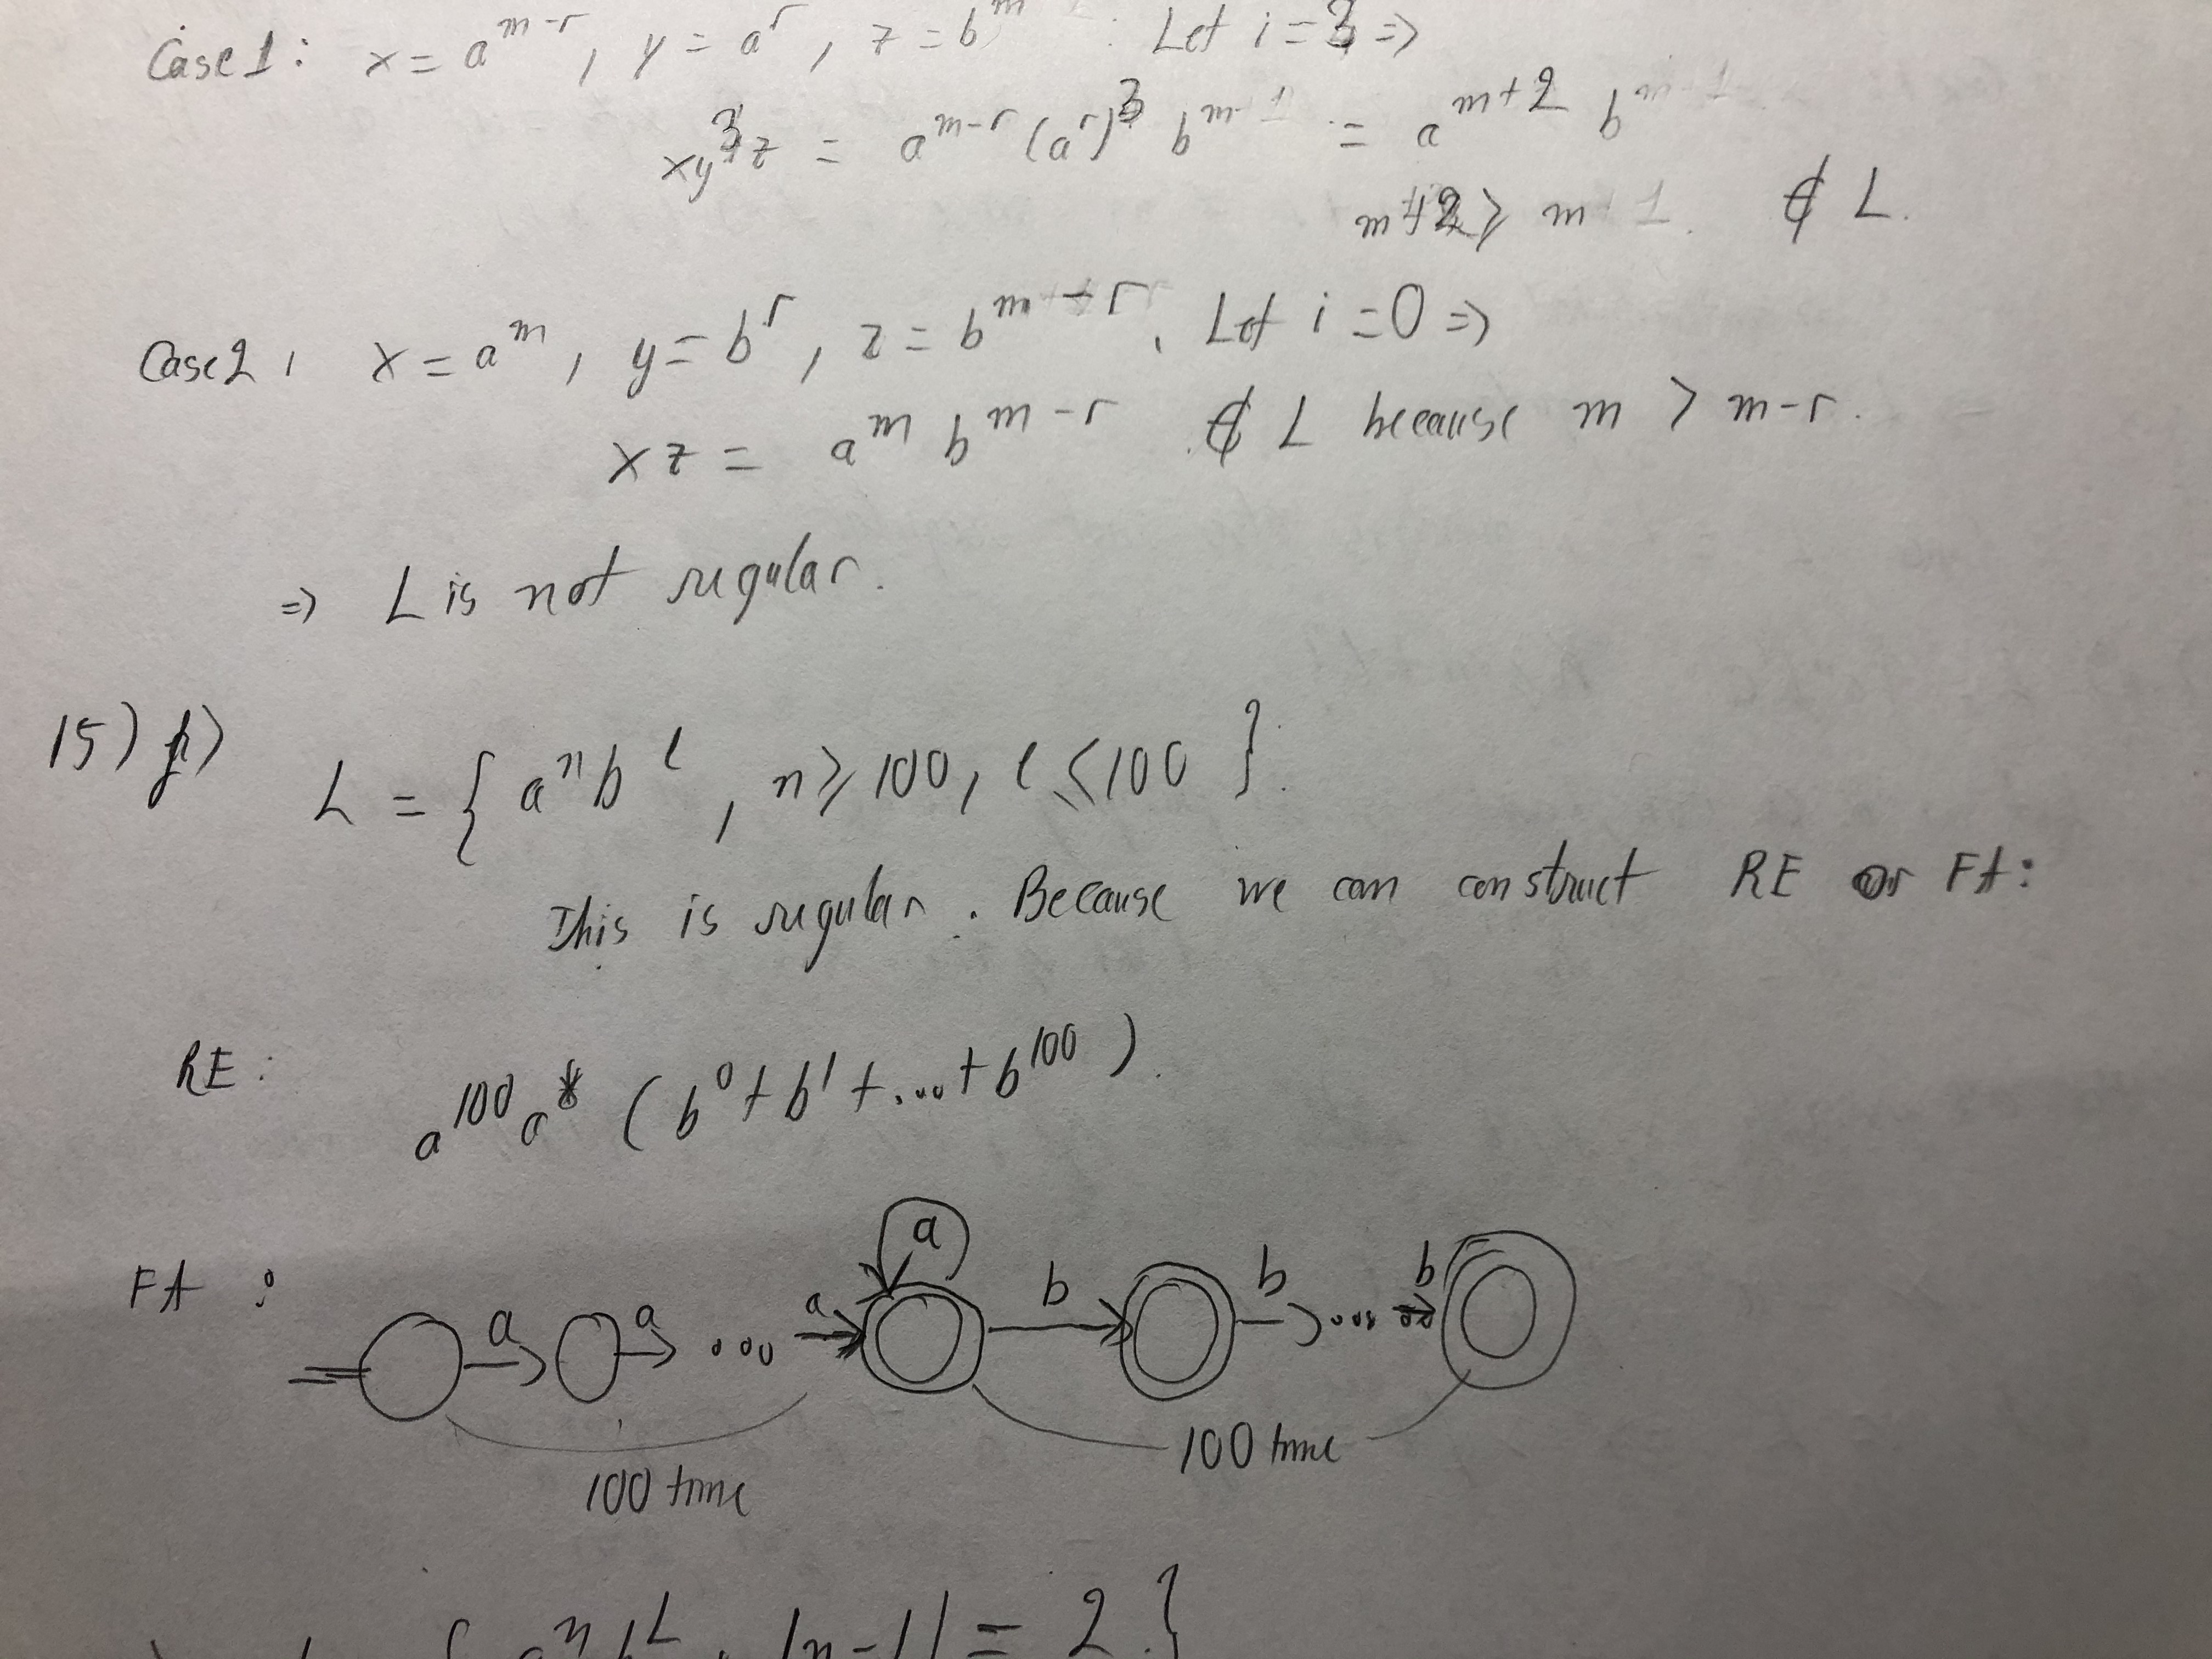 Case 1: x = a^{m-r}, y = a^r, z = b^m. Let i = 3 =>
xy^3z = a^{m-r} (a^r)^3 b^m = a^{m+2} b^m
m+2 > m ∉ L.
Case 2: x = a^m, y = b^r, z = b^{m-r}. Let i = 0 =>
xz = a^m b^{m-r} ∉ L because m > m-r.
=> L is not regular.
15)
L = { a^n b^l, n ≥ 100, l ≤ 100 }.
This is regular. Because we can construct RE or FA:
RE: a^{100} a^* (b^0 + b^1 + ... + b^{100}).
a
FA: a a ... a b b ... b
100 time 100 time
= 2 }